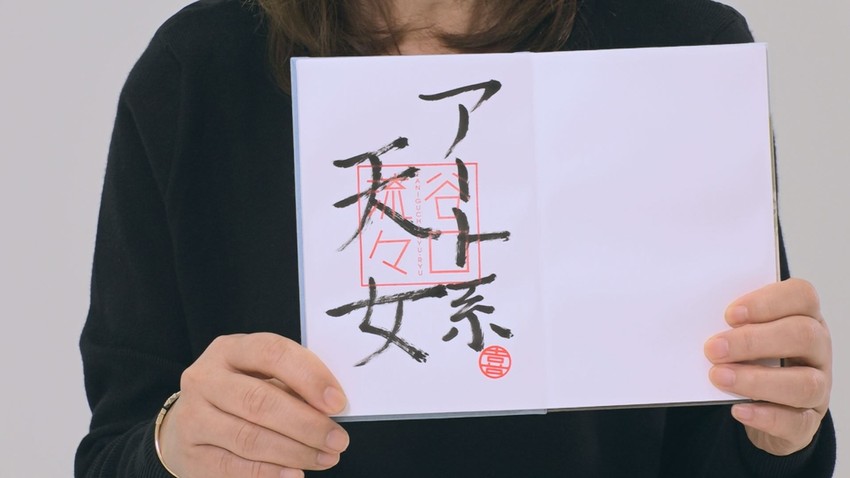 アート系
天女
谷口
流々
TANIGUCHI RYU-RYU
喜